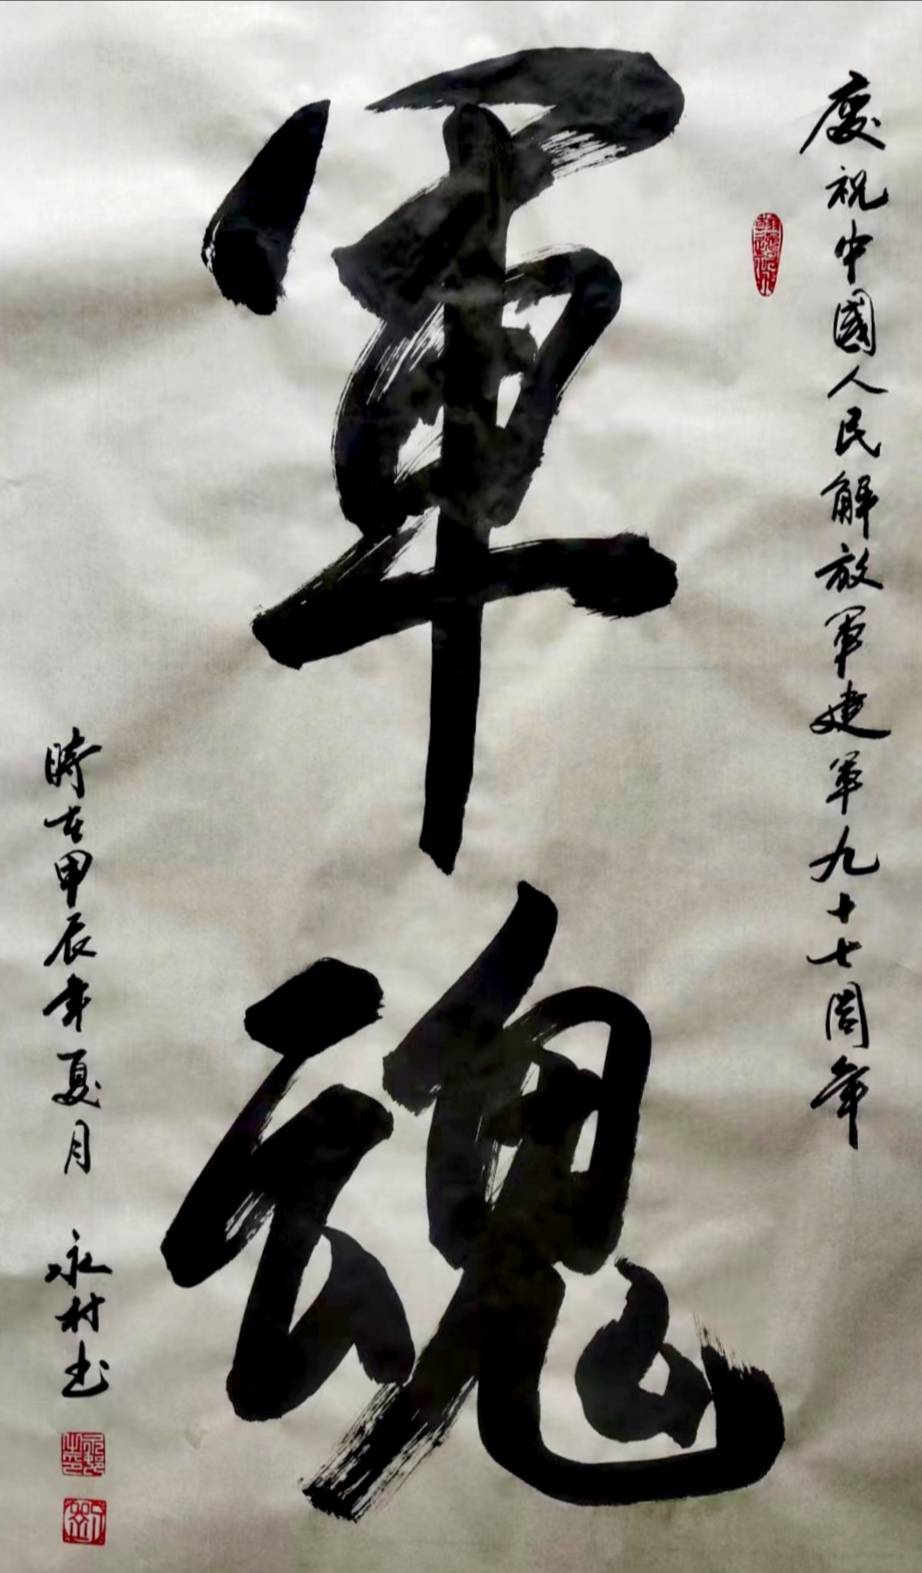 慶祝中國人民解放軍建軍九十七周年
軍魂
時在甲辰年夏月 永村书